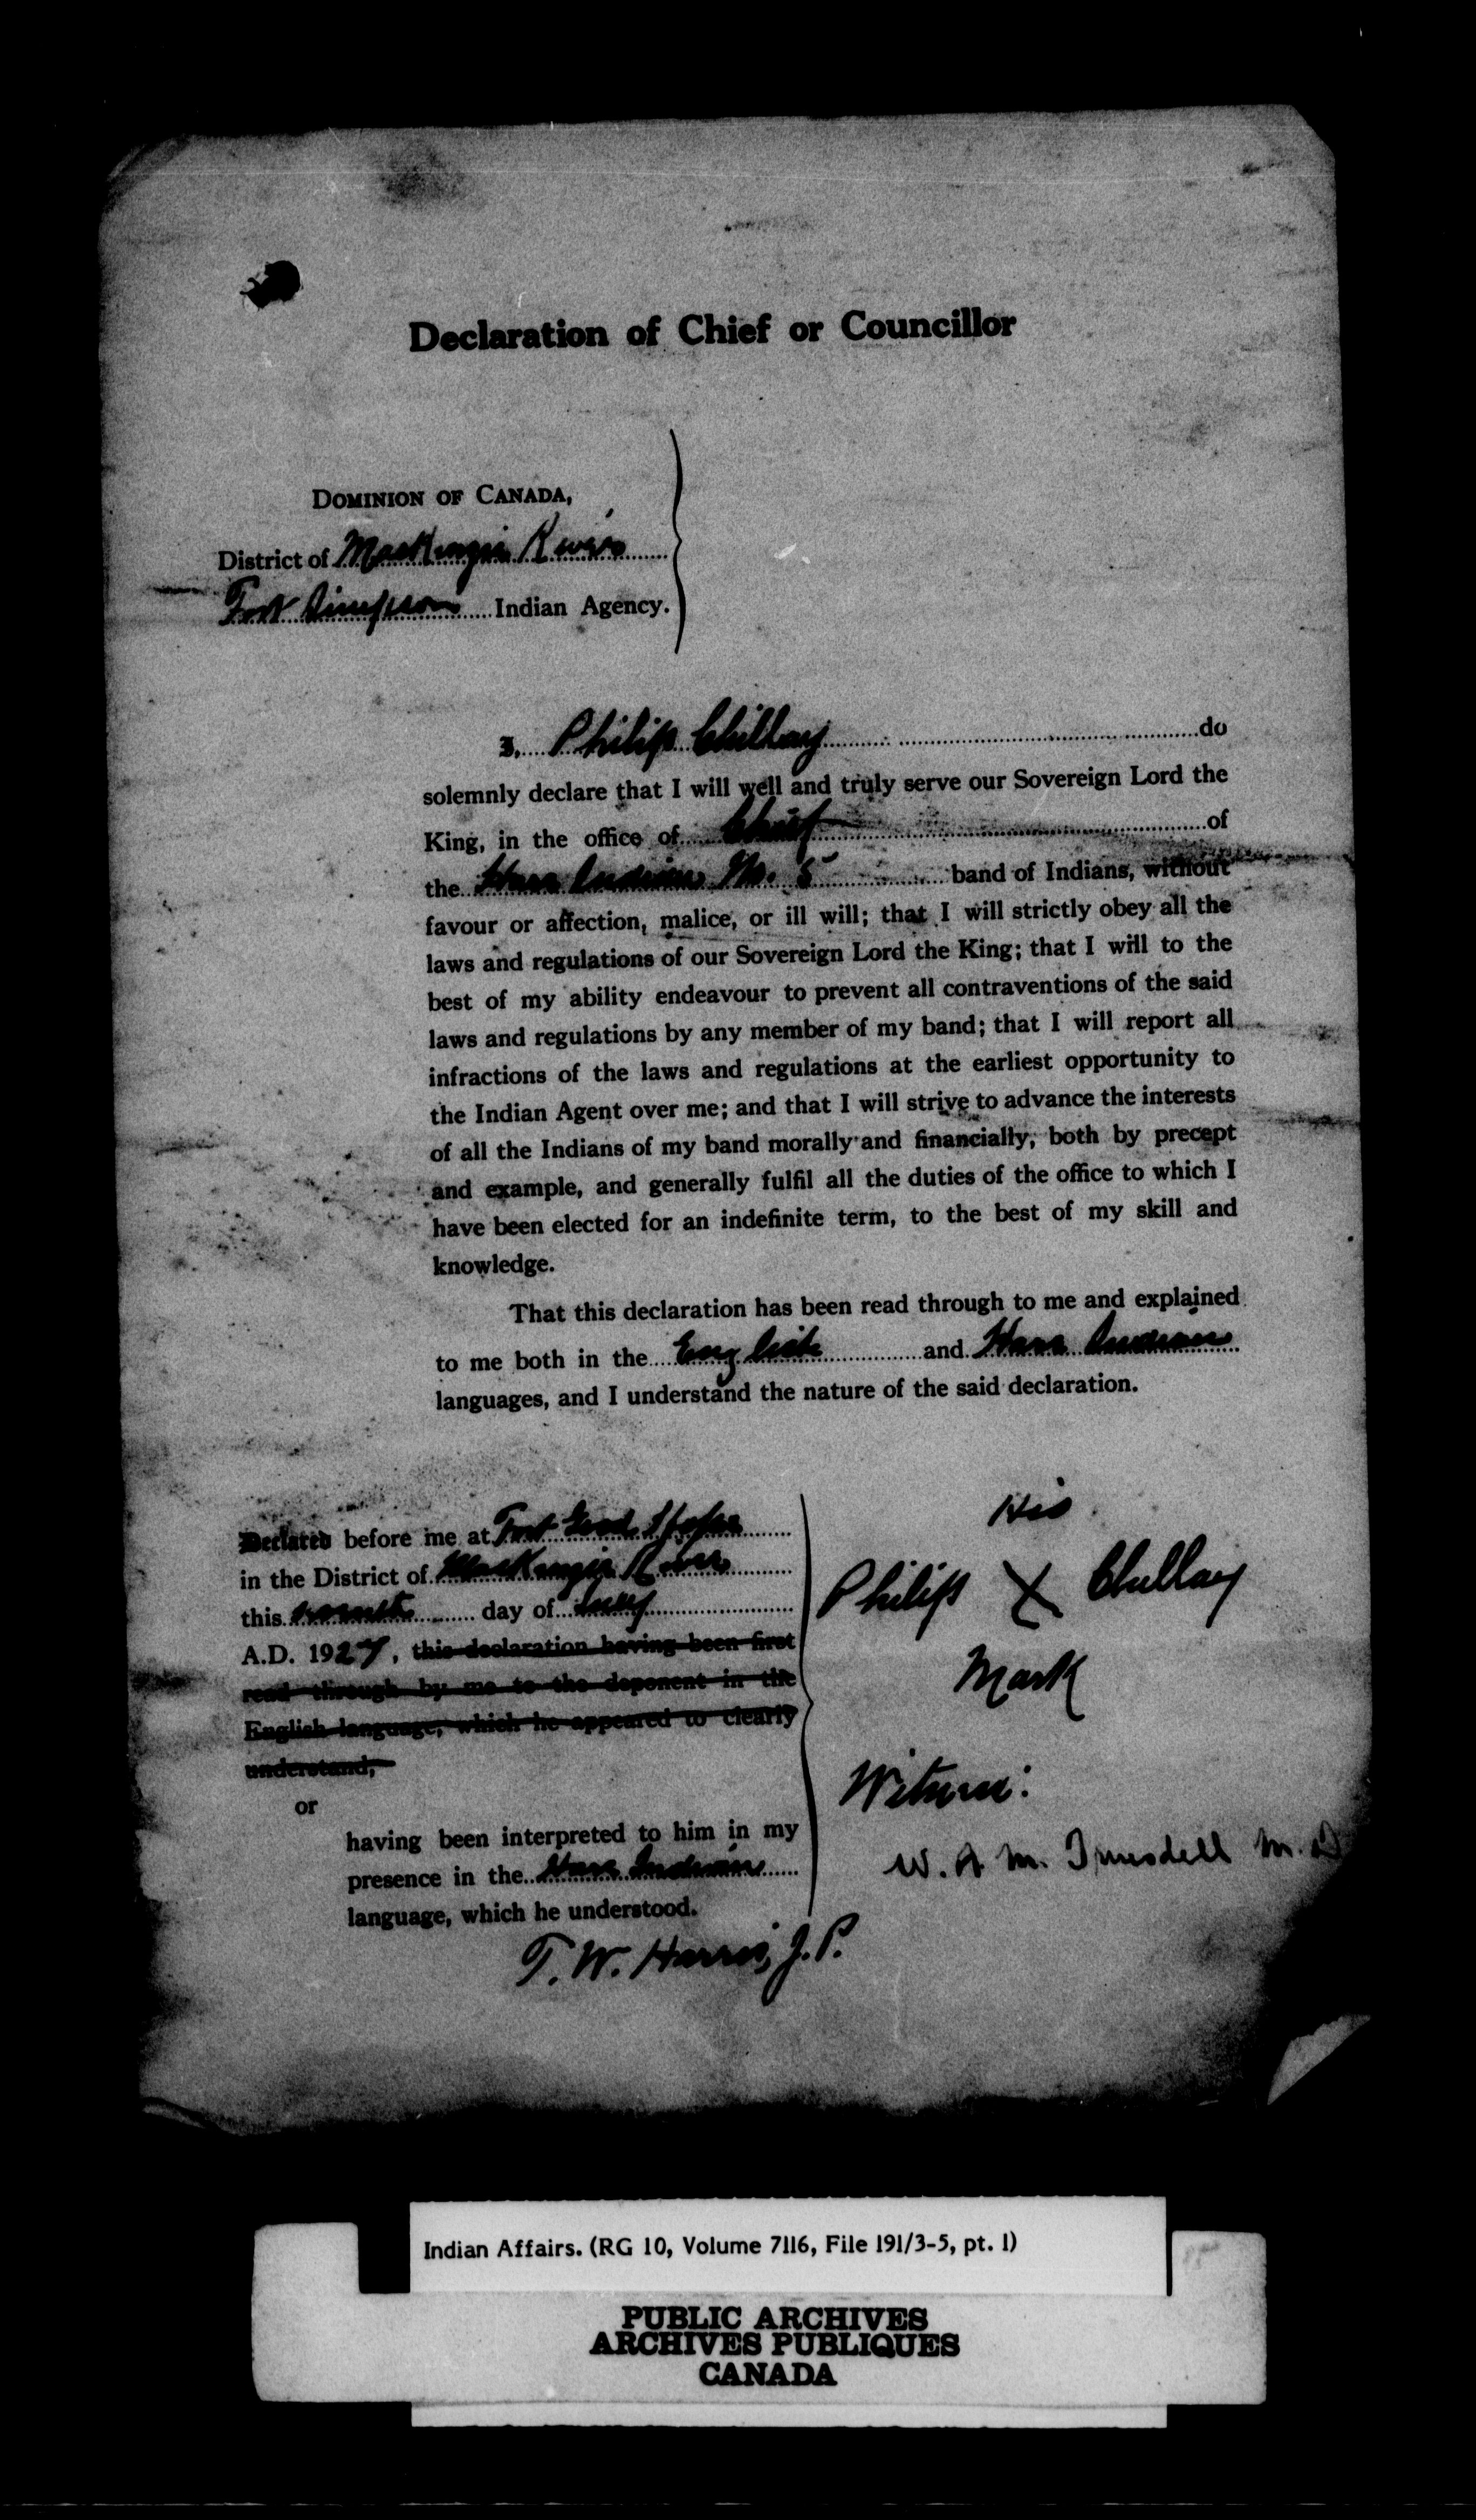 Declaration of Chief or Councillor
DOMINION OF CANADA,
District of MacKenzie River
Fort Simpson Indian Agency.
I, Philip Chillay do
solemnly declare that I will well and truly serve our Sovereign Lord the
King, in the office of Chief of
the Hare Indian No. 5 band of Indians, without
favour or affection, malice, or ill will; that I will strictly obey all the
laws and regulations of our Sovereign Lord the King; that I will to the
best of my ability endeavour to prevent all contraventions of the said
laws and regulations by any member of my band; that I will report all
infractions of the laws and regulations at the earliest opportunity to
the Indian Agent over me; and that I will strive to advance the interests
of all the Indians of my band morally and financially, both by precept
and example, and generally fulfil all the duties of the office to which I
have been elected for an indefinite term, to the best of my skill and
knowledge.
That this declaration has been read through to me and explained
to me both in the English and Hare Indian
languages, and I understand the nature of the said declaration.
Declared before me at Fort Good Hope
in the District of MacKenzie River
this day of July
A.D. 1927, this declaration having been first
read through by me to the deponent in the
English language, which he appeared to clearly
understand,
or
having been interpreted to him in my
presence in the Hare Indian
language, which he understood.
T. W. Harris, J.P.
His
Philip X Chillay
Mark
Witness:
W. A. M. Truesdell M.D
Indian Affairs. (RG 10, Volume 7116, File 191/3-5, pt. 1)
PUBLIC ARCHIVES
ARCHIVES PUBLIQUES
CANADA